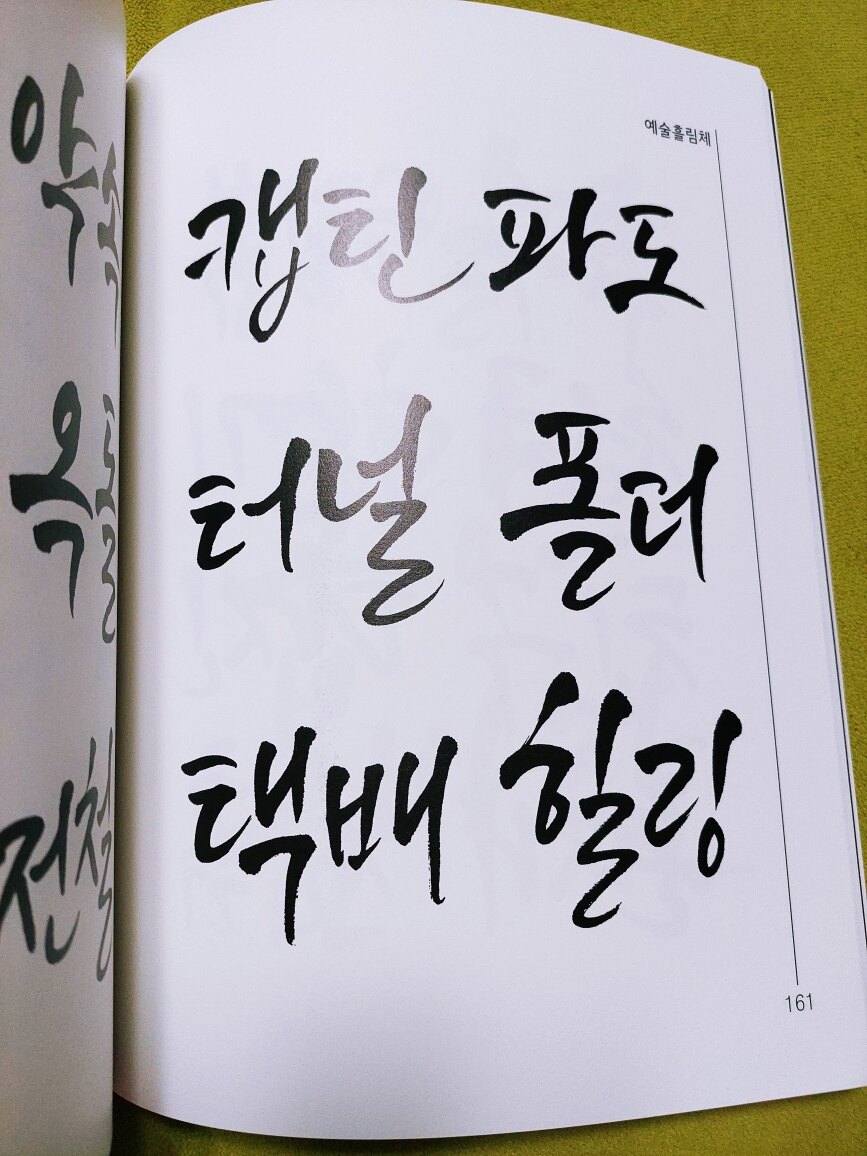 예술흘림체
캡틴 파도
터널 폴더
택배 힐링
161
약속
옥돌
전철